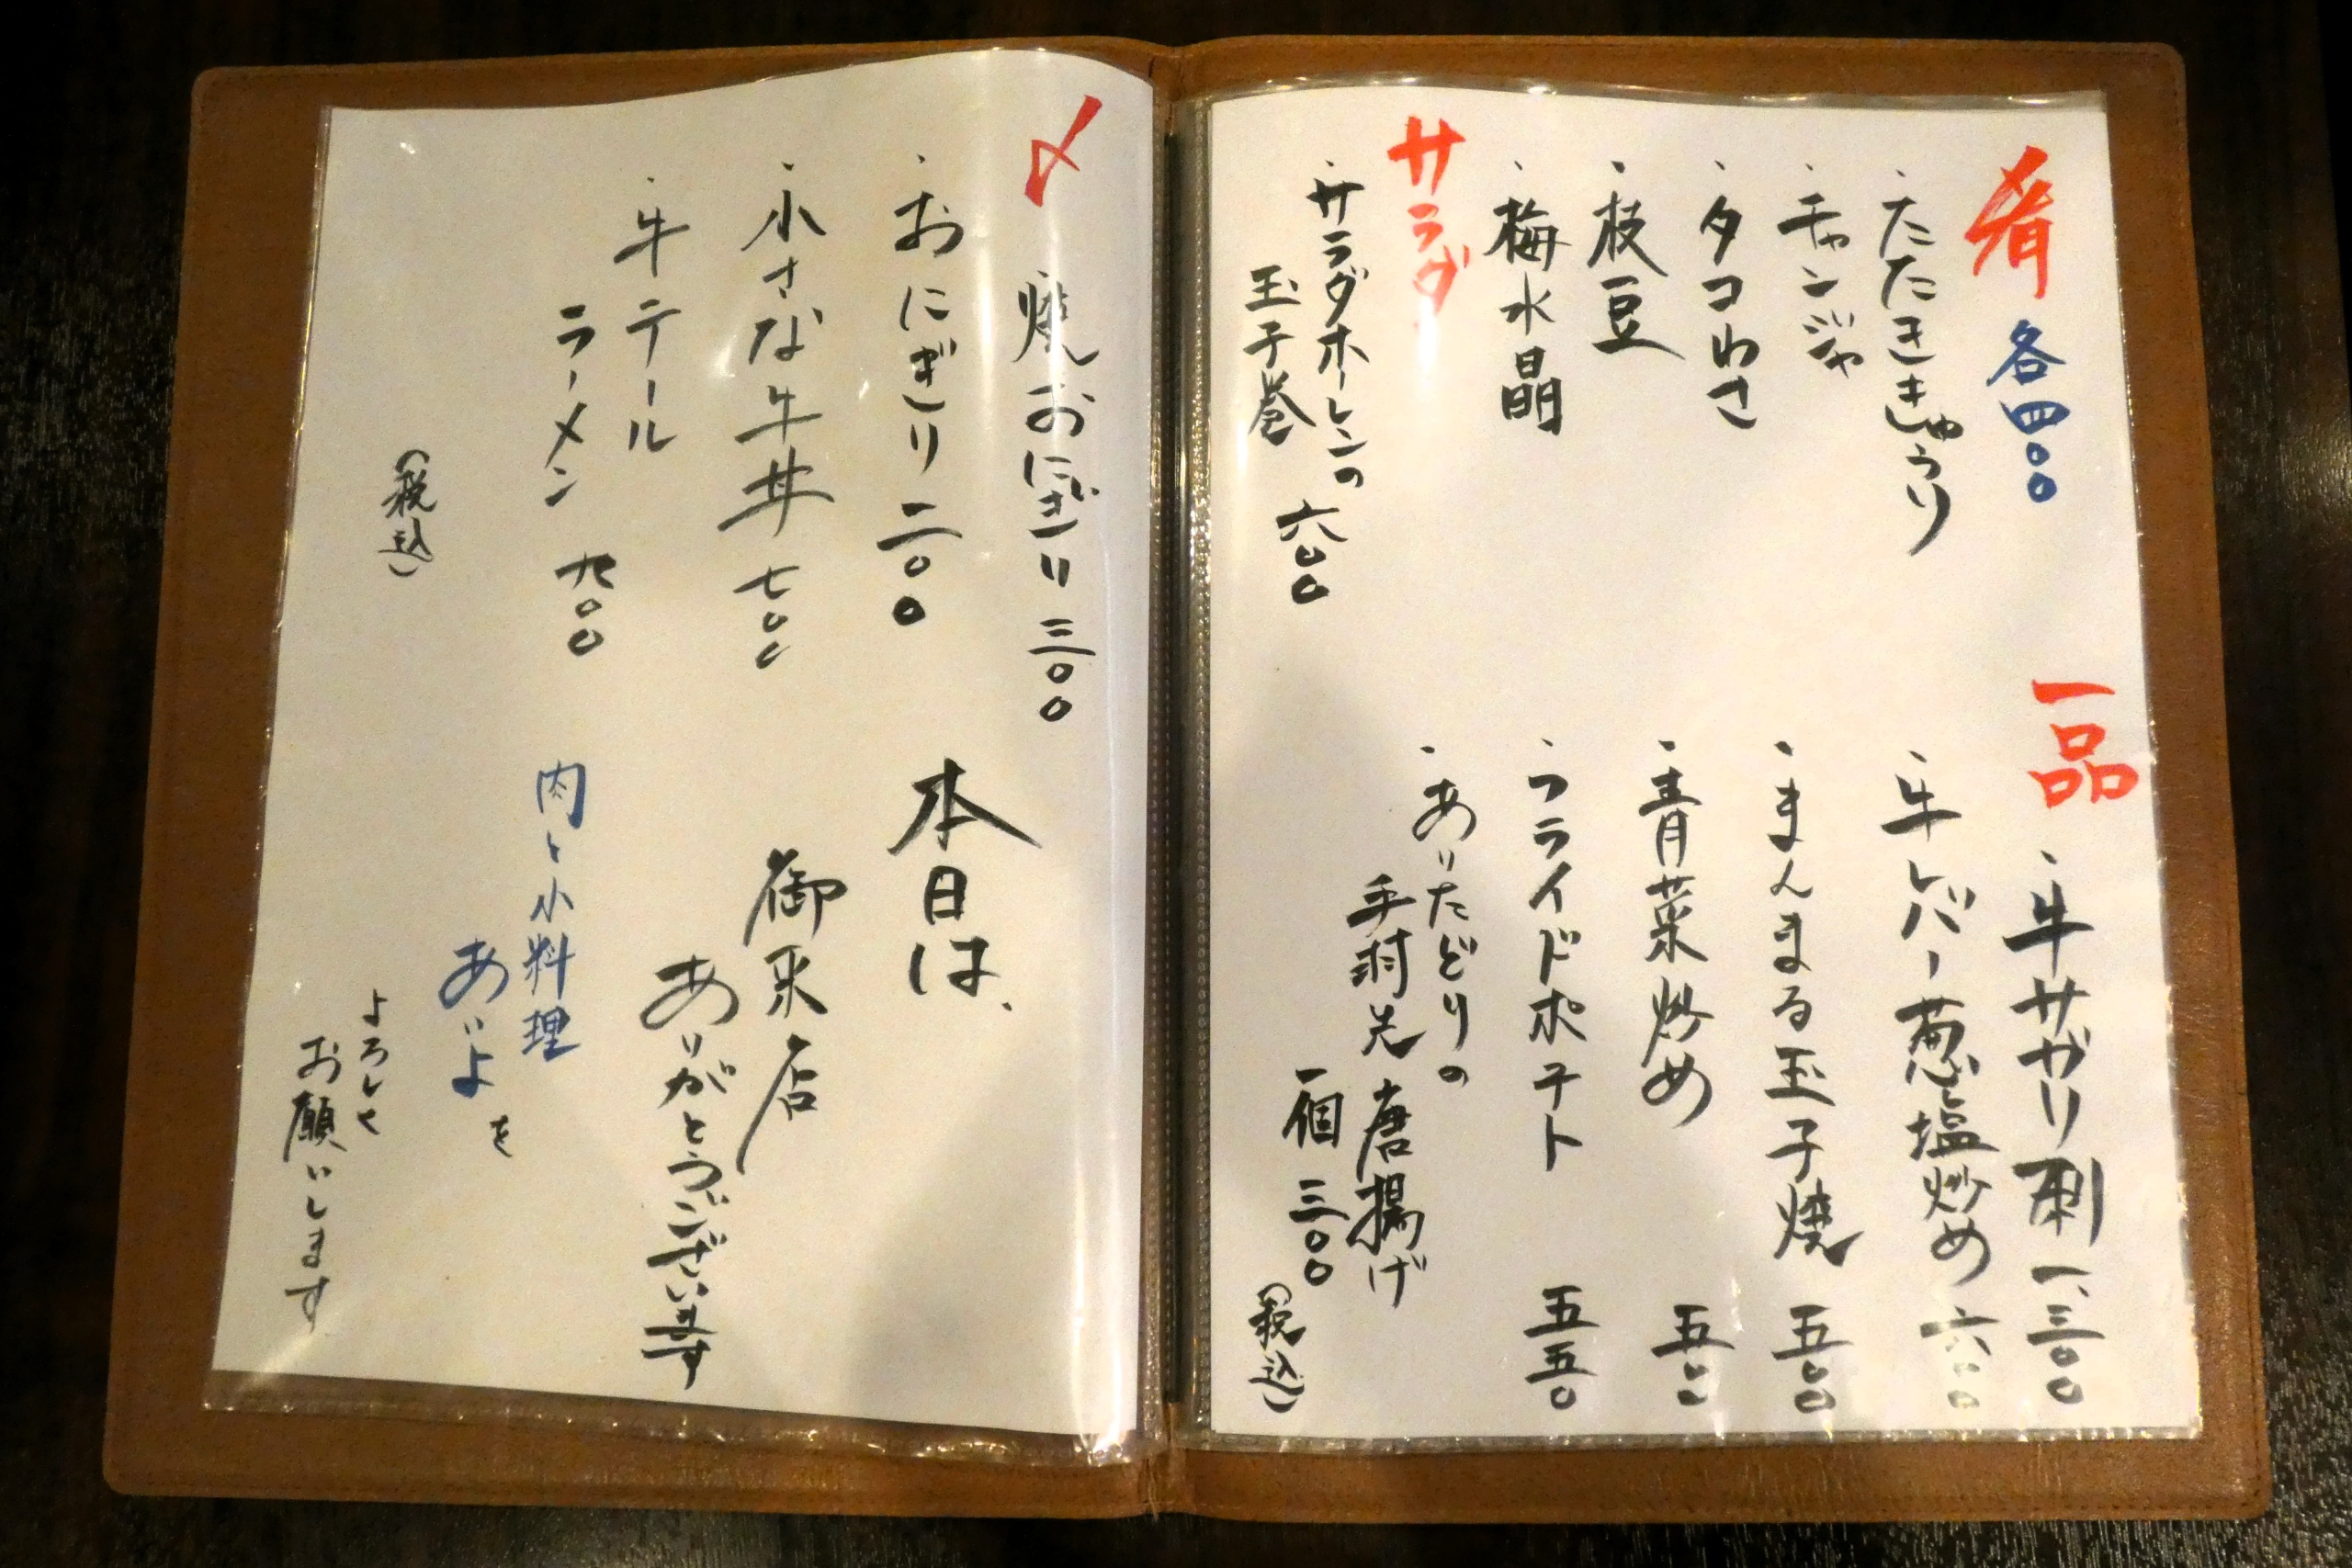 肴 各四〇〇
・たたききゅうり
・チャンジャ
・タコわさ
・枝豆
・梅水晶
サラダ
・サラダホーレンの
玉子巻 六〇〇
一品
・牛サガリ刺 一、三〇〇
・牛レバー葱塩炒め 六〇〇
・まんまる玉子焼 五〇〇
・青菜炒め 五〇〇
・フライドポテト 五五〇
・ありたどりの
手羽先 唐揚げ
一個 三〇〇
(税込)
〆
・焼おにぎり 三〇〇
・おにぎり 二〇〇
・小さな牛丼 七〇〇
・牛テール
ラーメン 九〇〇
(税込)
本日は、
御来店
ありがとうございます
肉と小料理
あいよを
よろしく
お願いします